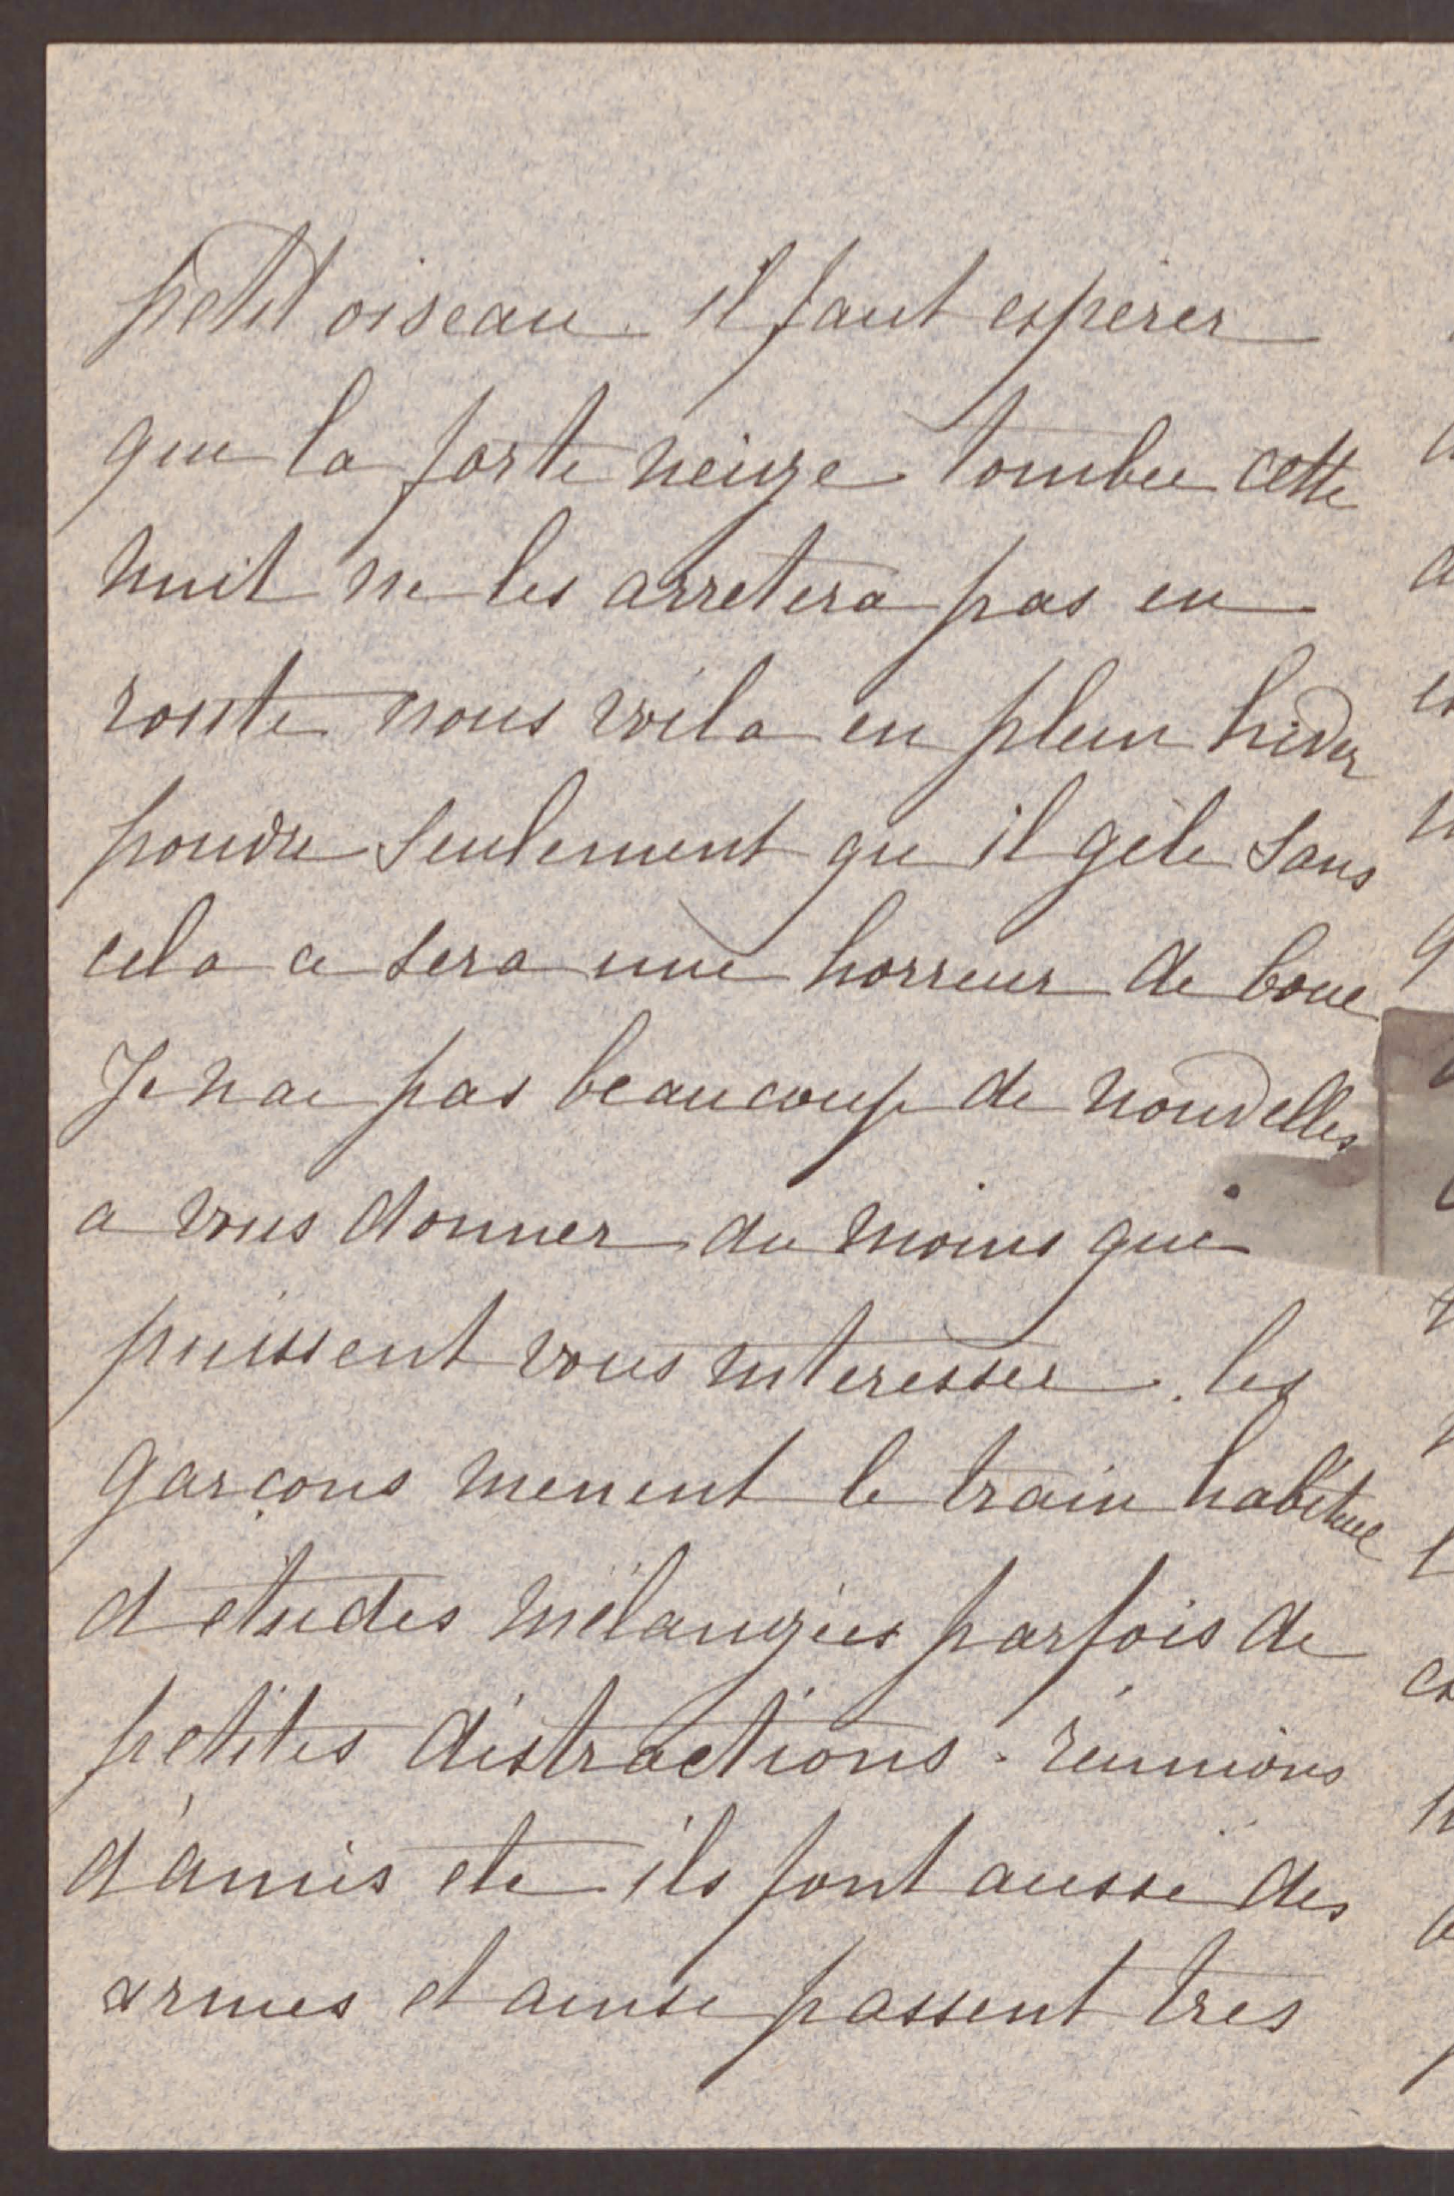 petit oiseau. il faut esperer
que la forte neige tombée cette
nuit ne les arretera pas en
route nous voila en plein hiver
pourvu seulement qu il gèle sans
cela ce sera une horreur de boue
Je nai pas beaucoup de nouvelles
a vous donner du moins qui
puissent vous interesser. les
garçons menent le train habituel
d etudes mélangées parfois de
petites distractions - réunions
d'amis etc ils font aussi des
armes et ainsi passent tres